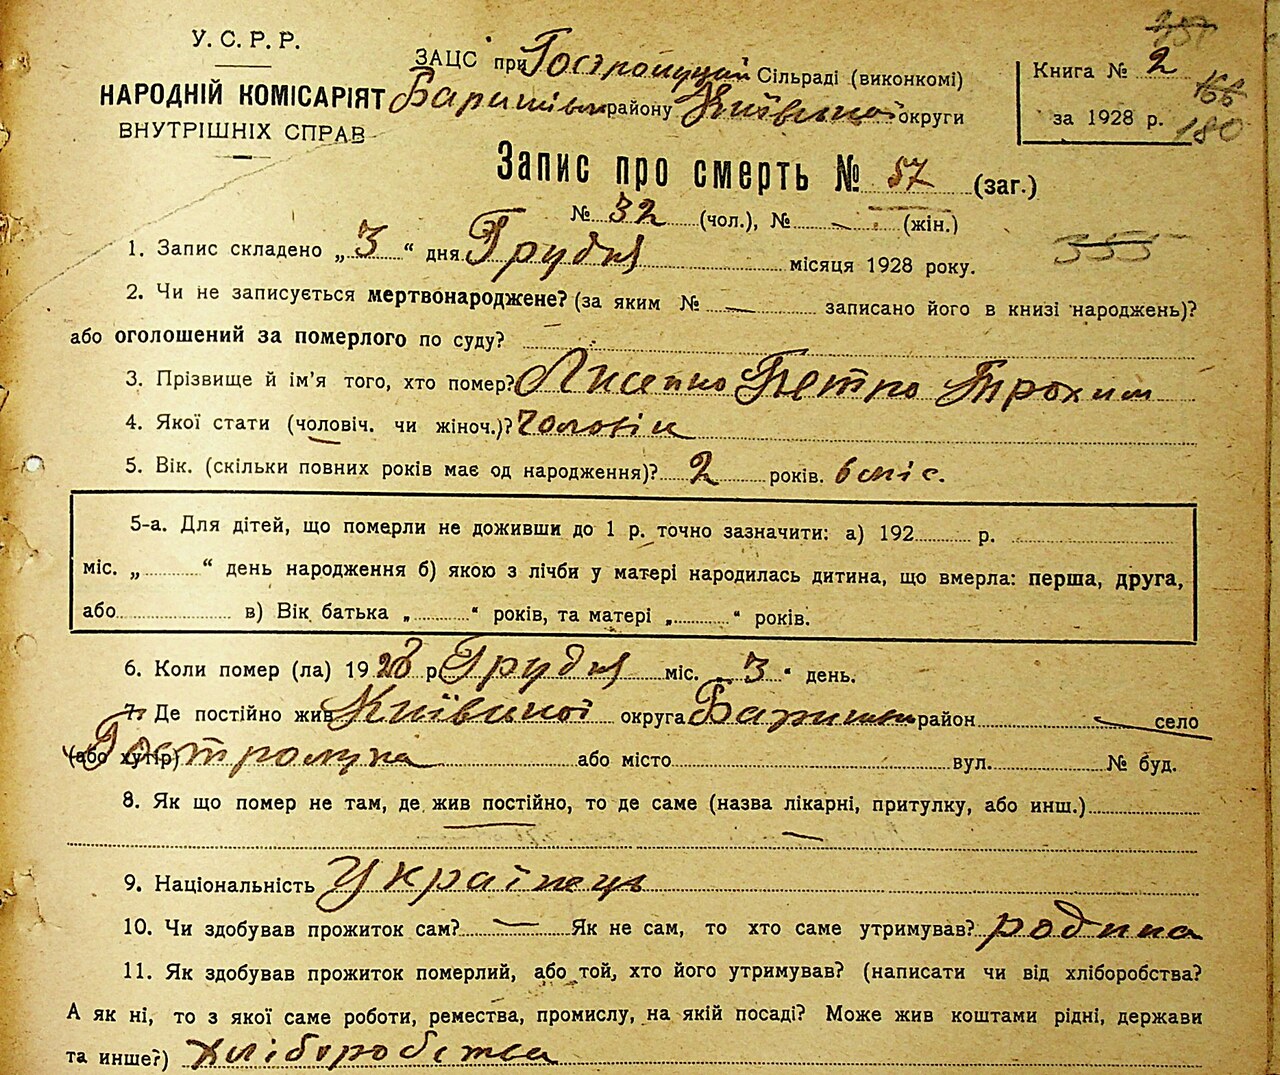 У. С. Р. Р.
НАРОДНІЙ КОМІСАРІЯТ
ВНУТРІШНІХ СПРАВ
ЗАЦС при Гостролуцкій Сільраді (виконкомі)
Баришівськ району Київської округи
Книга № 2
за 1928 р.
166
180
Запис про смерть № 57 (заг.)
№ 32 (чол.), № — (жін.)
355
1. Запис складено „ 3 “ дня Грудня місяця 1928 року.
2. Чи не записується мертвонароджене? (за яким № — записано його в книзі народжень)?
або оголошений за померлого по суду?
3. Прізвище й ім'я того, хто помер? Лисенко Петро Трохим
4. Якої стати (чоловіч. чи жіноч.)? Чоловік
5. Вік. (скільки повних років має од народження)? 2 років. 6 міс.
5-а. Для дітей, що померли не доживши до 1 р. точно зазначити: а) 192 р.
міс. „ “ день народження б) якою з лічби у матері народилась дитина, що вмерла: перша, друга,
або в) Вік батька „ “ років, та матері „ “ років.
6. Коли помер (ла) 1928 р. Грудня міс. 3 “ день.
7. Де постійно жив Київської округа Баришівськ район — село
(або хутір) Гостролуча або місто вул. № буд.
8. Як що помер не там, де жив постійно, то де саме (назва лікарні, притулку, або инш.)
—
9. Національність Українець
10. Чи здобував прожиток сам? — Як не сам, то хто саме утримував? родина
11. Як здобував прожиток померлий, або той, хто його утримував? (написати чи від хліборобства?
А як ні, то з якої саме роботи, ремества, промислу, на якій посаді? Може жив коштами рідні, держави
та инше?) Хліборобства